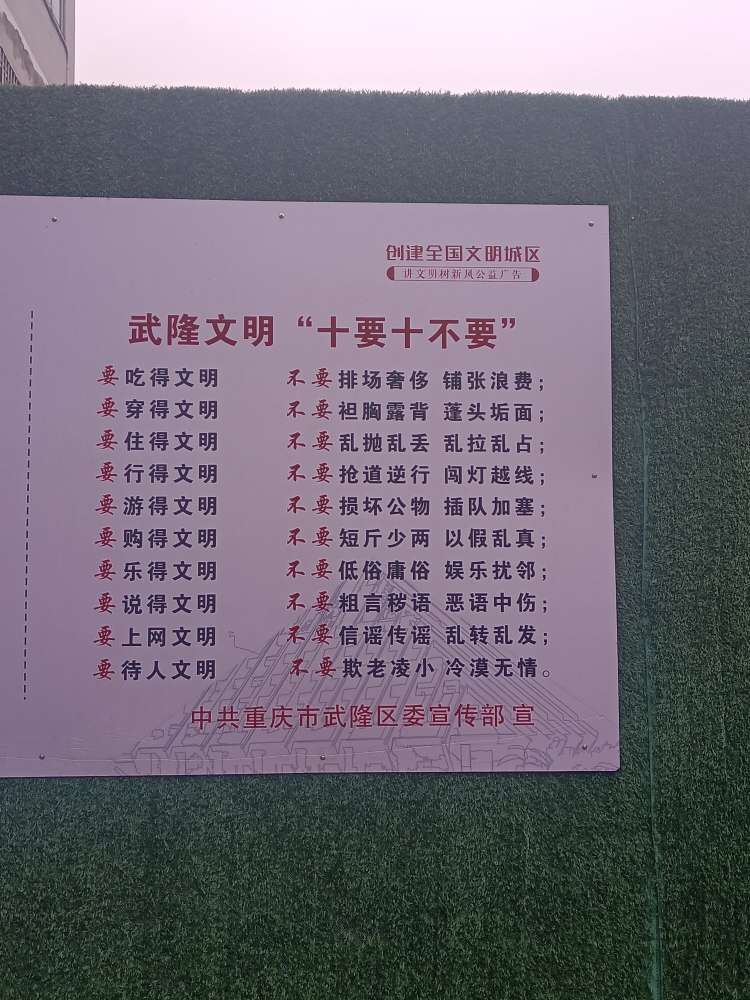 创建全国文明城区
讲文明树新风公益广告
武隆文明“十要十不要”
要吃得文明 不要排场奢侈 铺张浪费；
要穿得文明 不要袒胸露背 蓬头垢面；
要住得文明 不要乱抛乱丢 乱拉乱占；
要行得文明 不要抢道逆行 闯灯越线；
要游得文明 不要损坏公物 插队加塞；
要购得文明 不要短斤少两 以假乱真；
要乐得文明 不要低俗庸俗 娱乐扰邻；
要说得文明 不要粗言秽语 恶语中伤；
要上网文明 不要信谣传谣 乱转乱发；
要待人文明 不要欺老凌小 冷漠无情。
中共重庆市武隆区委宣传部 宣